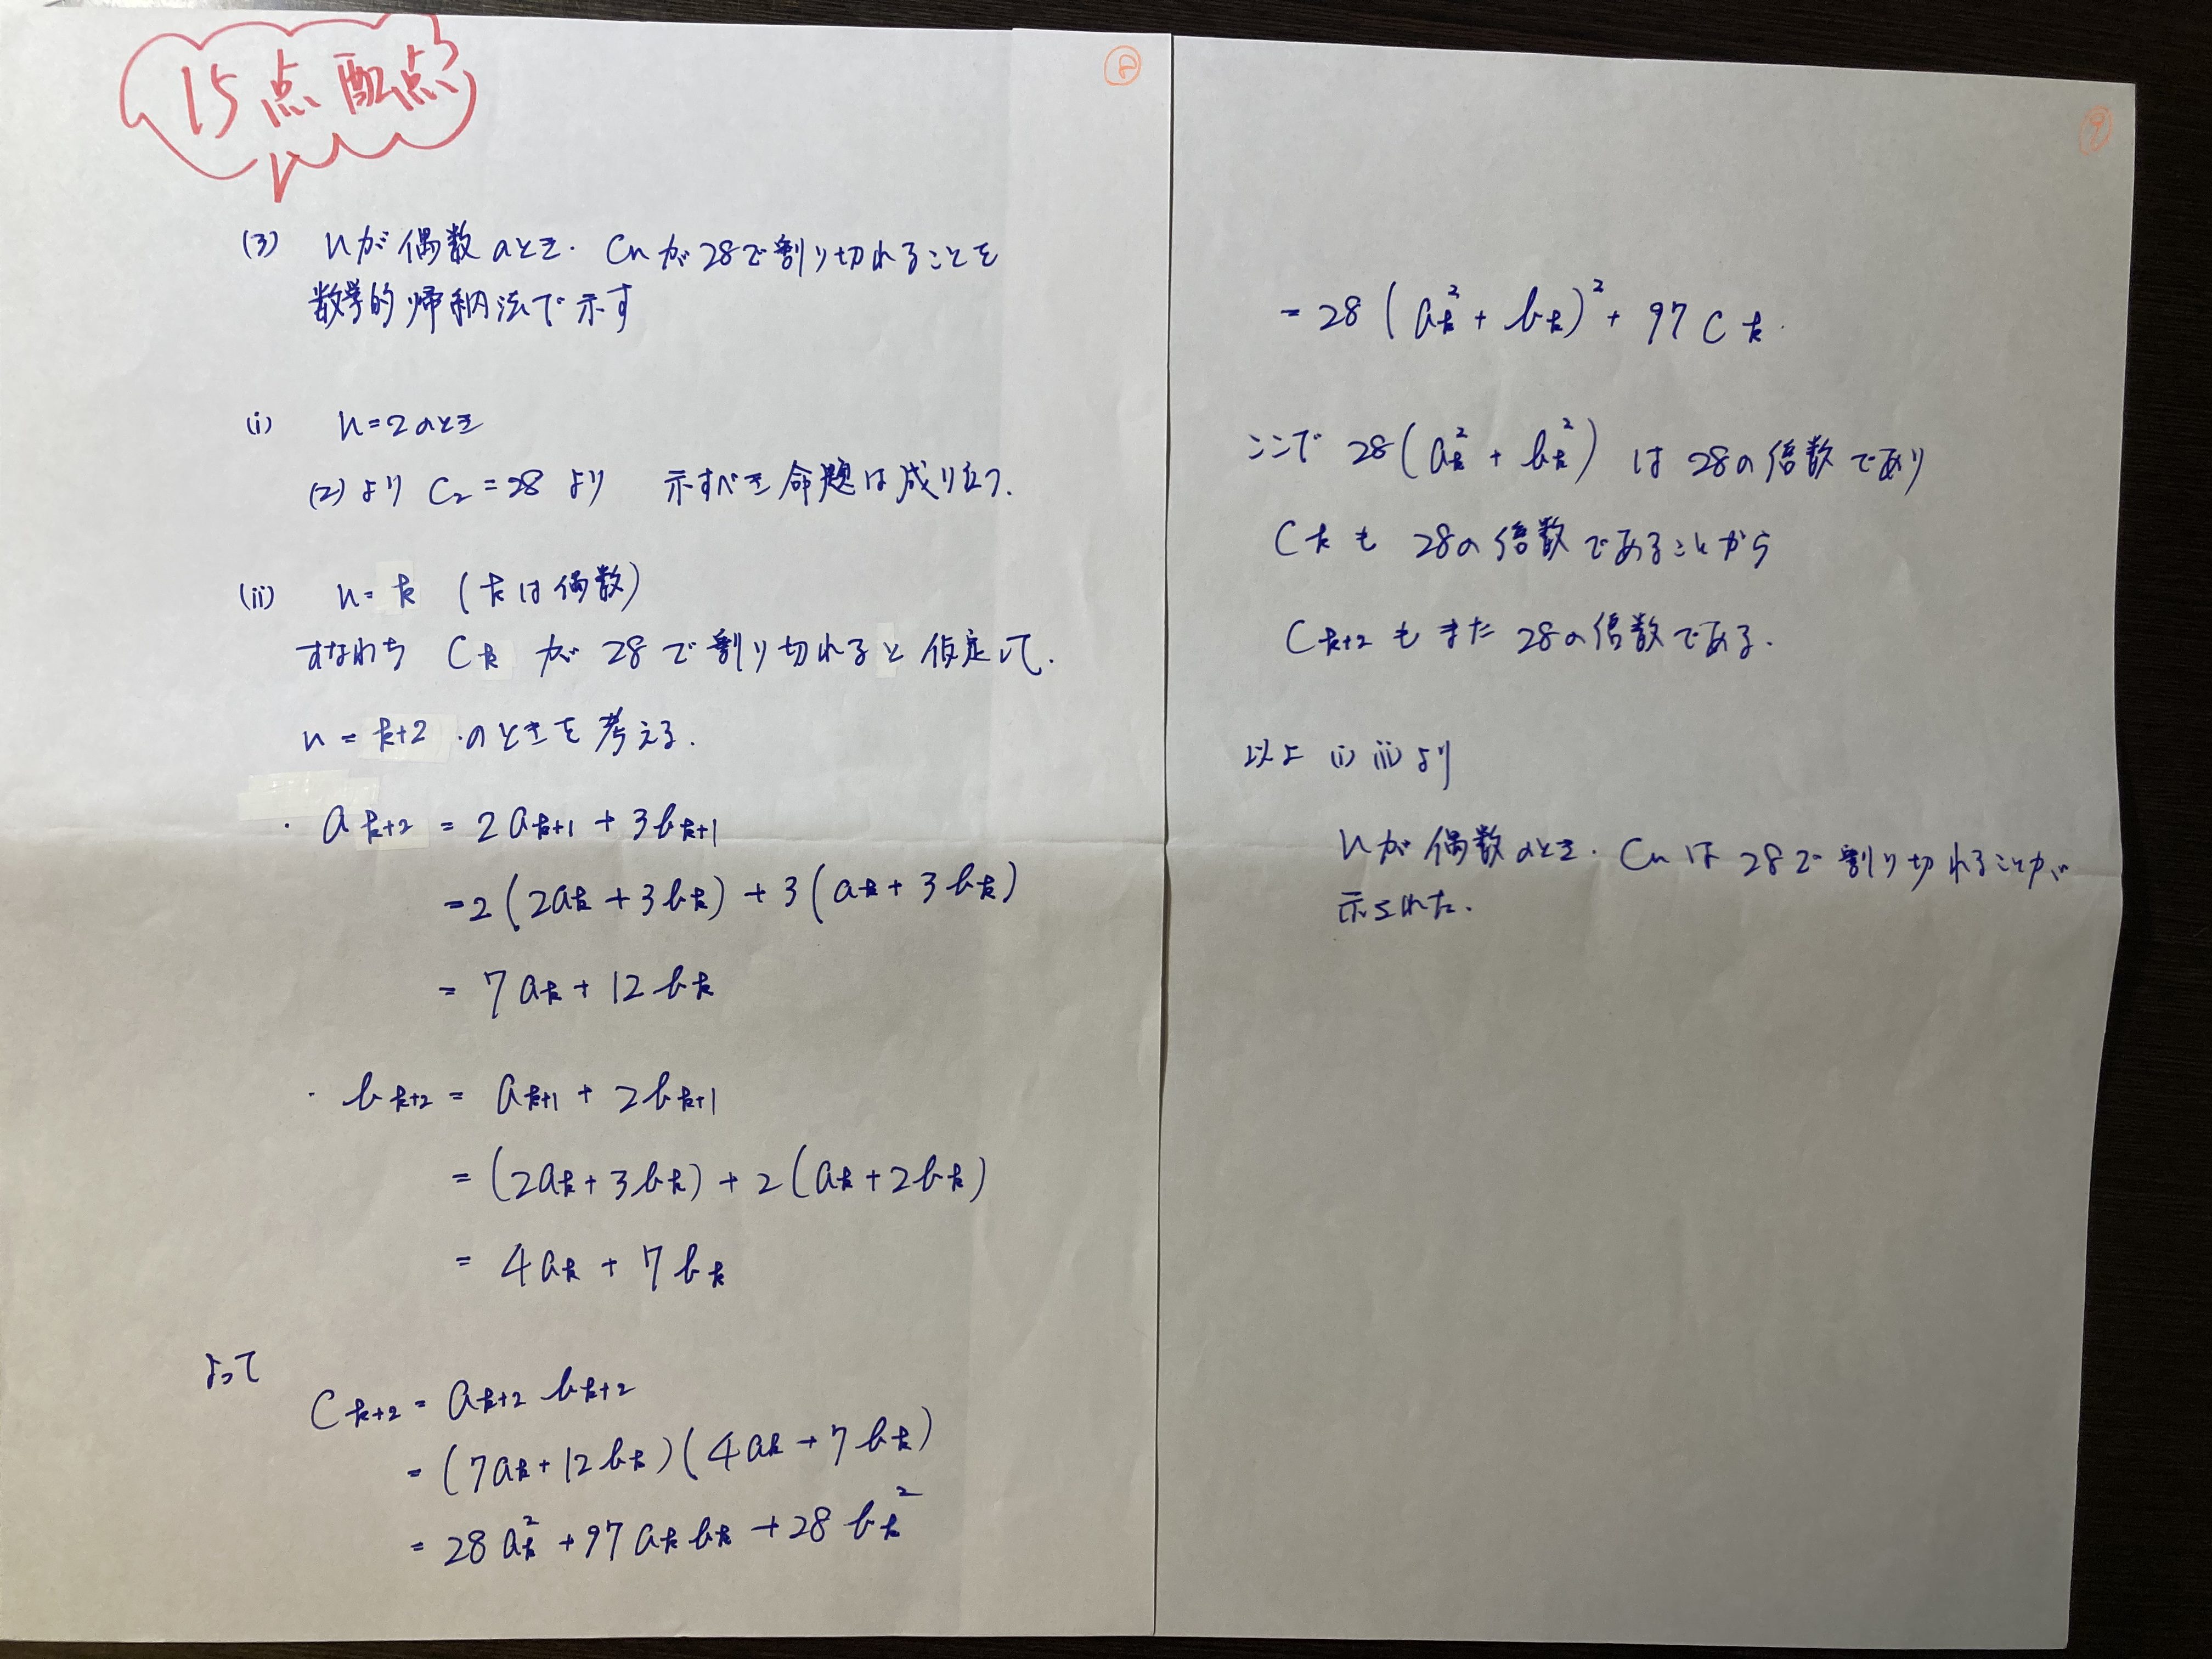 15点配点
⑧
(3) nが偶数のとき. Cnが28で割り切れることを
数学的帰納法で示す
(i) n=2のとき
(2)より C₂=28より 示すべき命題は成り立つ.
(ii) n=k (kは偶数)
すなわち Ck が 28で割り切れると仮定して.
n=k+2.のときを考える.
・ak+2 = 2ak+1 + 3bk+1
=2(2ak+3bk)+3(ak+3bk)
= 7ak+12bk
・bk+2 = ak+1 + 2bk+1
= (2ak+3bk)+2(ak+2bk)
= 4ak + 7bk
よって
Ck+2 = ak+2 bk+2
= (7ak+12bk)(4ak+7bk)
= 28ak²+97akbk+28bk²
⑨
= 28(ak²+bk)²+97Ck.
ここで 28(ak²+bk²) は 28の倍数であり
Ckも 28の倍数であることから
Ck+2もまた 28の倍数である.
以上 (i) (ii)より
nが偶数のとき. Cnは28で割り切れることが
示された.